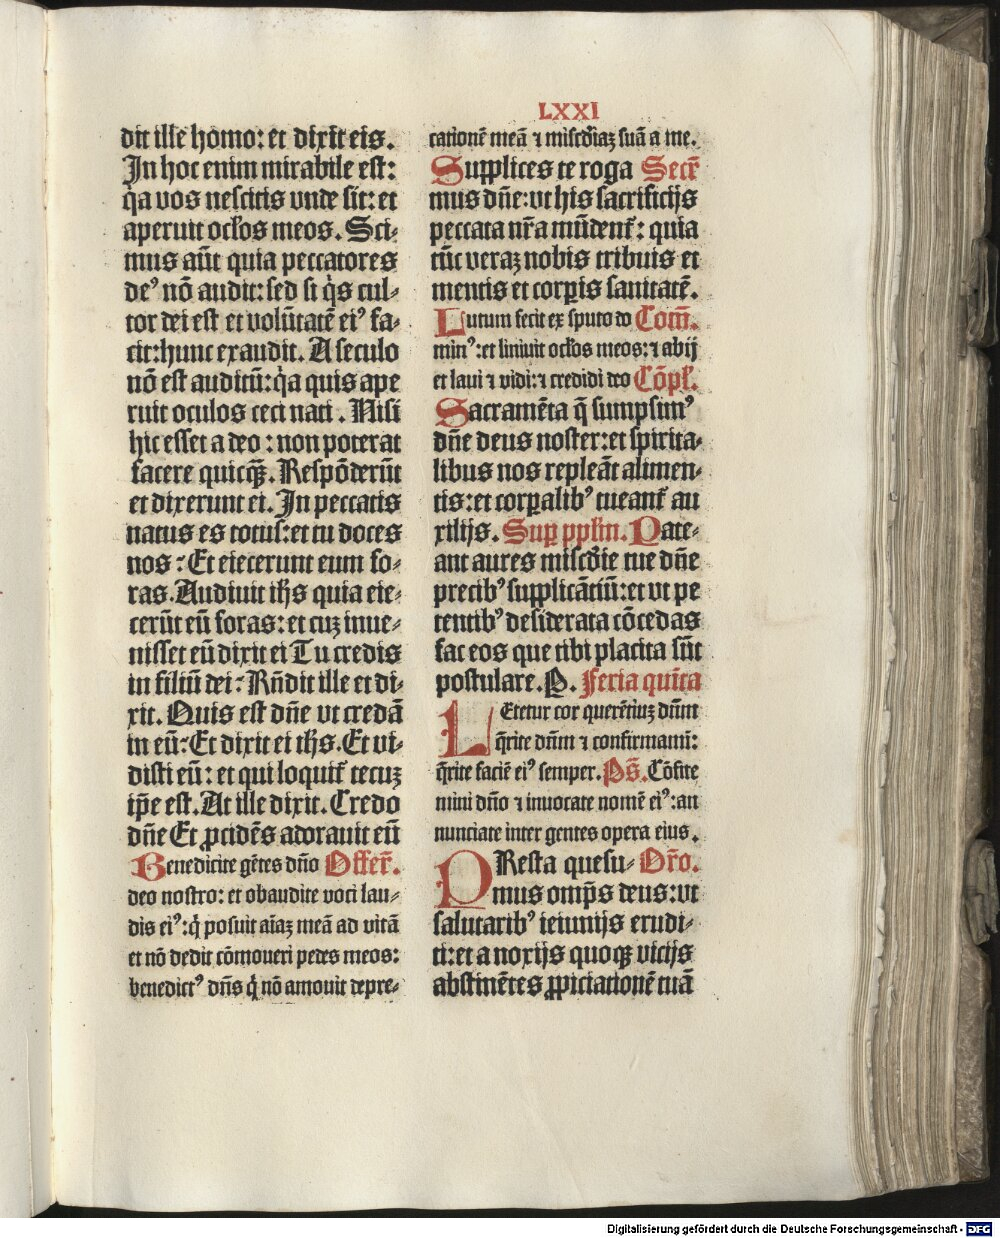 LXXI
dit ille homo: et dixit eis.
In hoc enim mirabile est:
q̇a vos nescitis vnde sit: et
aperuit oc̄los meos. Sci-
mus aūt quia peccatores
deꝰ nō audit: sed si q̇s cul-
tor dei est et volūtatē eiꝰ fa-
cit: hunc exaudit. A seculo
nō est auditū: q̇a quis ape
ruit oculos ceci nati. Nisi
hic esset a deo: non poterat
facere quicq̄ꝫ. Respōderūt
et dixerunt ei. In peccatis
natus es totus: et tu doces
nos: Et eiecerunt eum fo-
ras. Audiuit ih̄s quia eie-
cerūt eū foras: et cuꝫ inue-
nisset eū dixit ei Tu credis
in filiū dei: Rn̄dit ille et di-
xit. Quis est dn̄e vt credā
in eū: Et dixit ei ih̄s. Et vi-
disti eū: et qui loquit᷑ tecuꝫ
ip̄e est. At ille dixit. Credo
dn̄e Et ꝓcidēs adorauit eū
Benedicite gētes dn̄o Offer̄.
deo nostro: et obaudite voci lau-
dis eiꝰ: q̇ posuit aīaꝫ meā ad vitā
et nō dedit cōmoueri pedes meos:
benedictꝰ dn̄s q̇ nō amouit depre-
cationē meā ⁊ misc̄diaꝫ suā a me.
Supplices te roga Secr̄
mus dn̄e: vt his sacrificijs
peccata nr̄a mūdent᷑: quia
tūc veraꝫ nobis tribuis et
mentis et corꝑis sanitatē.
Lutum fecit ex sputo do Com̄.
minꝰ: et liniuit oc̄los meos: ⁊ abij
et laui ⁊ vidi: ⁊ credidi deo Cōpl̄.
Sacramēta q̄ sumpsimꝰ
dn̄e deus noster: et spirita-
libus nos repleāt alimen-
tis: et corꝑalibꝰ tueant᷑ au
xilijs. Suꝑ ppl̄m. Pate-
ant aures misc̄die tue dn̄e
precibꝰ supplicātiū: et vt pe
tentibꝰ desiderata cōcedas
fac eos que tibi placita sūt
postulare. P. Feria quīta
LEtetur cor querētiuꝫ dn̄m
q̄rite dn̄m ⁊ confirmamī:
q̄rite faciē eiꝰ semper. Ps̄. Cōfite
mini dn̄o ⁊ inuocate nomē eiꝰ: an
nunciate inter gentes opera eius.
PResta quesu- Or̄o.
mus omp̄s deus: vt
salutaribꝰ ieiunijs erudi-
ti: et a noxijs quoqꝫ vicijs
abstinētes ꝓpiciationē tuā
Digitalisierung gefördert durch die Deutsche Forschungsgemeinschaft - DFG